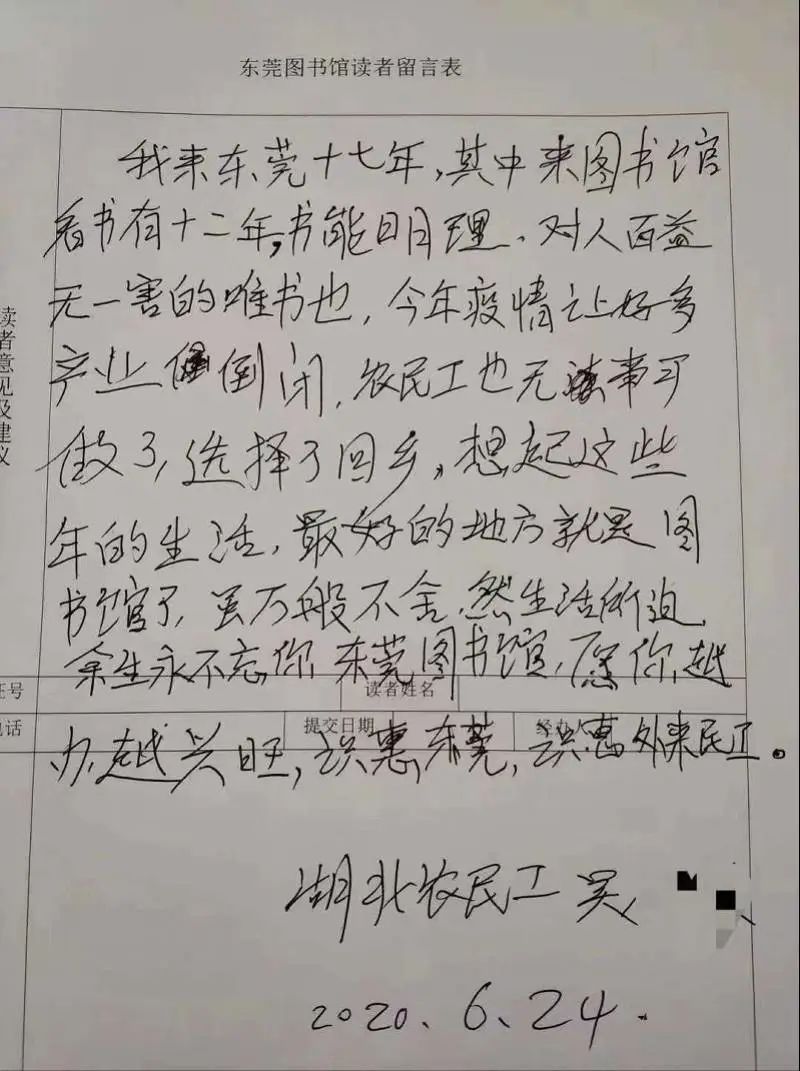 东莞图书馆读者留言表
我来东莞十七年,其中来图书馆
看书有十二年,书能明理、对人百益
无一害的唯书也,今年疫情让好多
产业倒闭,农民工也无事可
做了,选择了回乡,想起这些
年的生活,最好的地方就是图
书馆了,虽万般不舍,然生活所迫,
余生永不忘你,东莞图书馆,愿你越
办越兴旺,识惠东莞,识惠外来民工。
湖北农民工 吴
2020、6、24.
读者意见及建议
证号
读者姓名
电话
提交日期
经办人